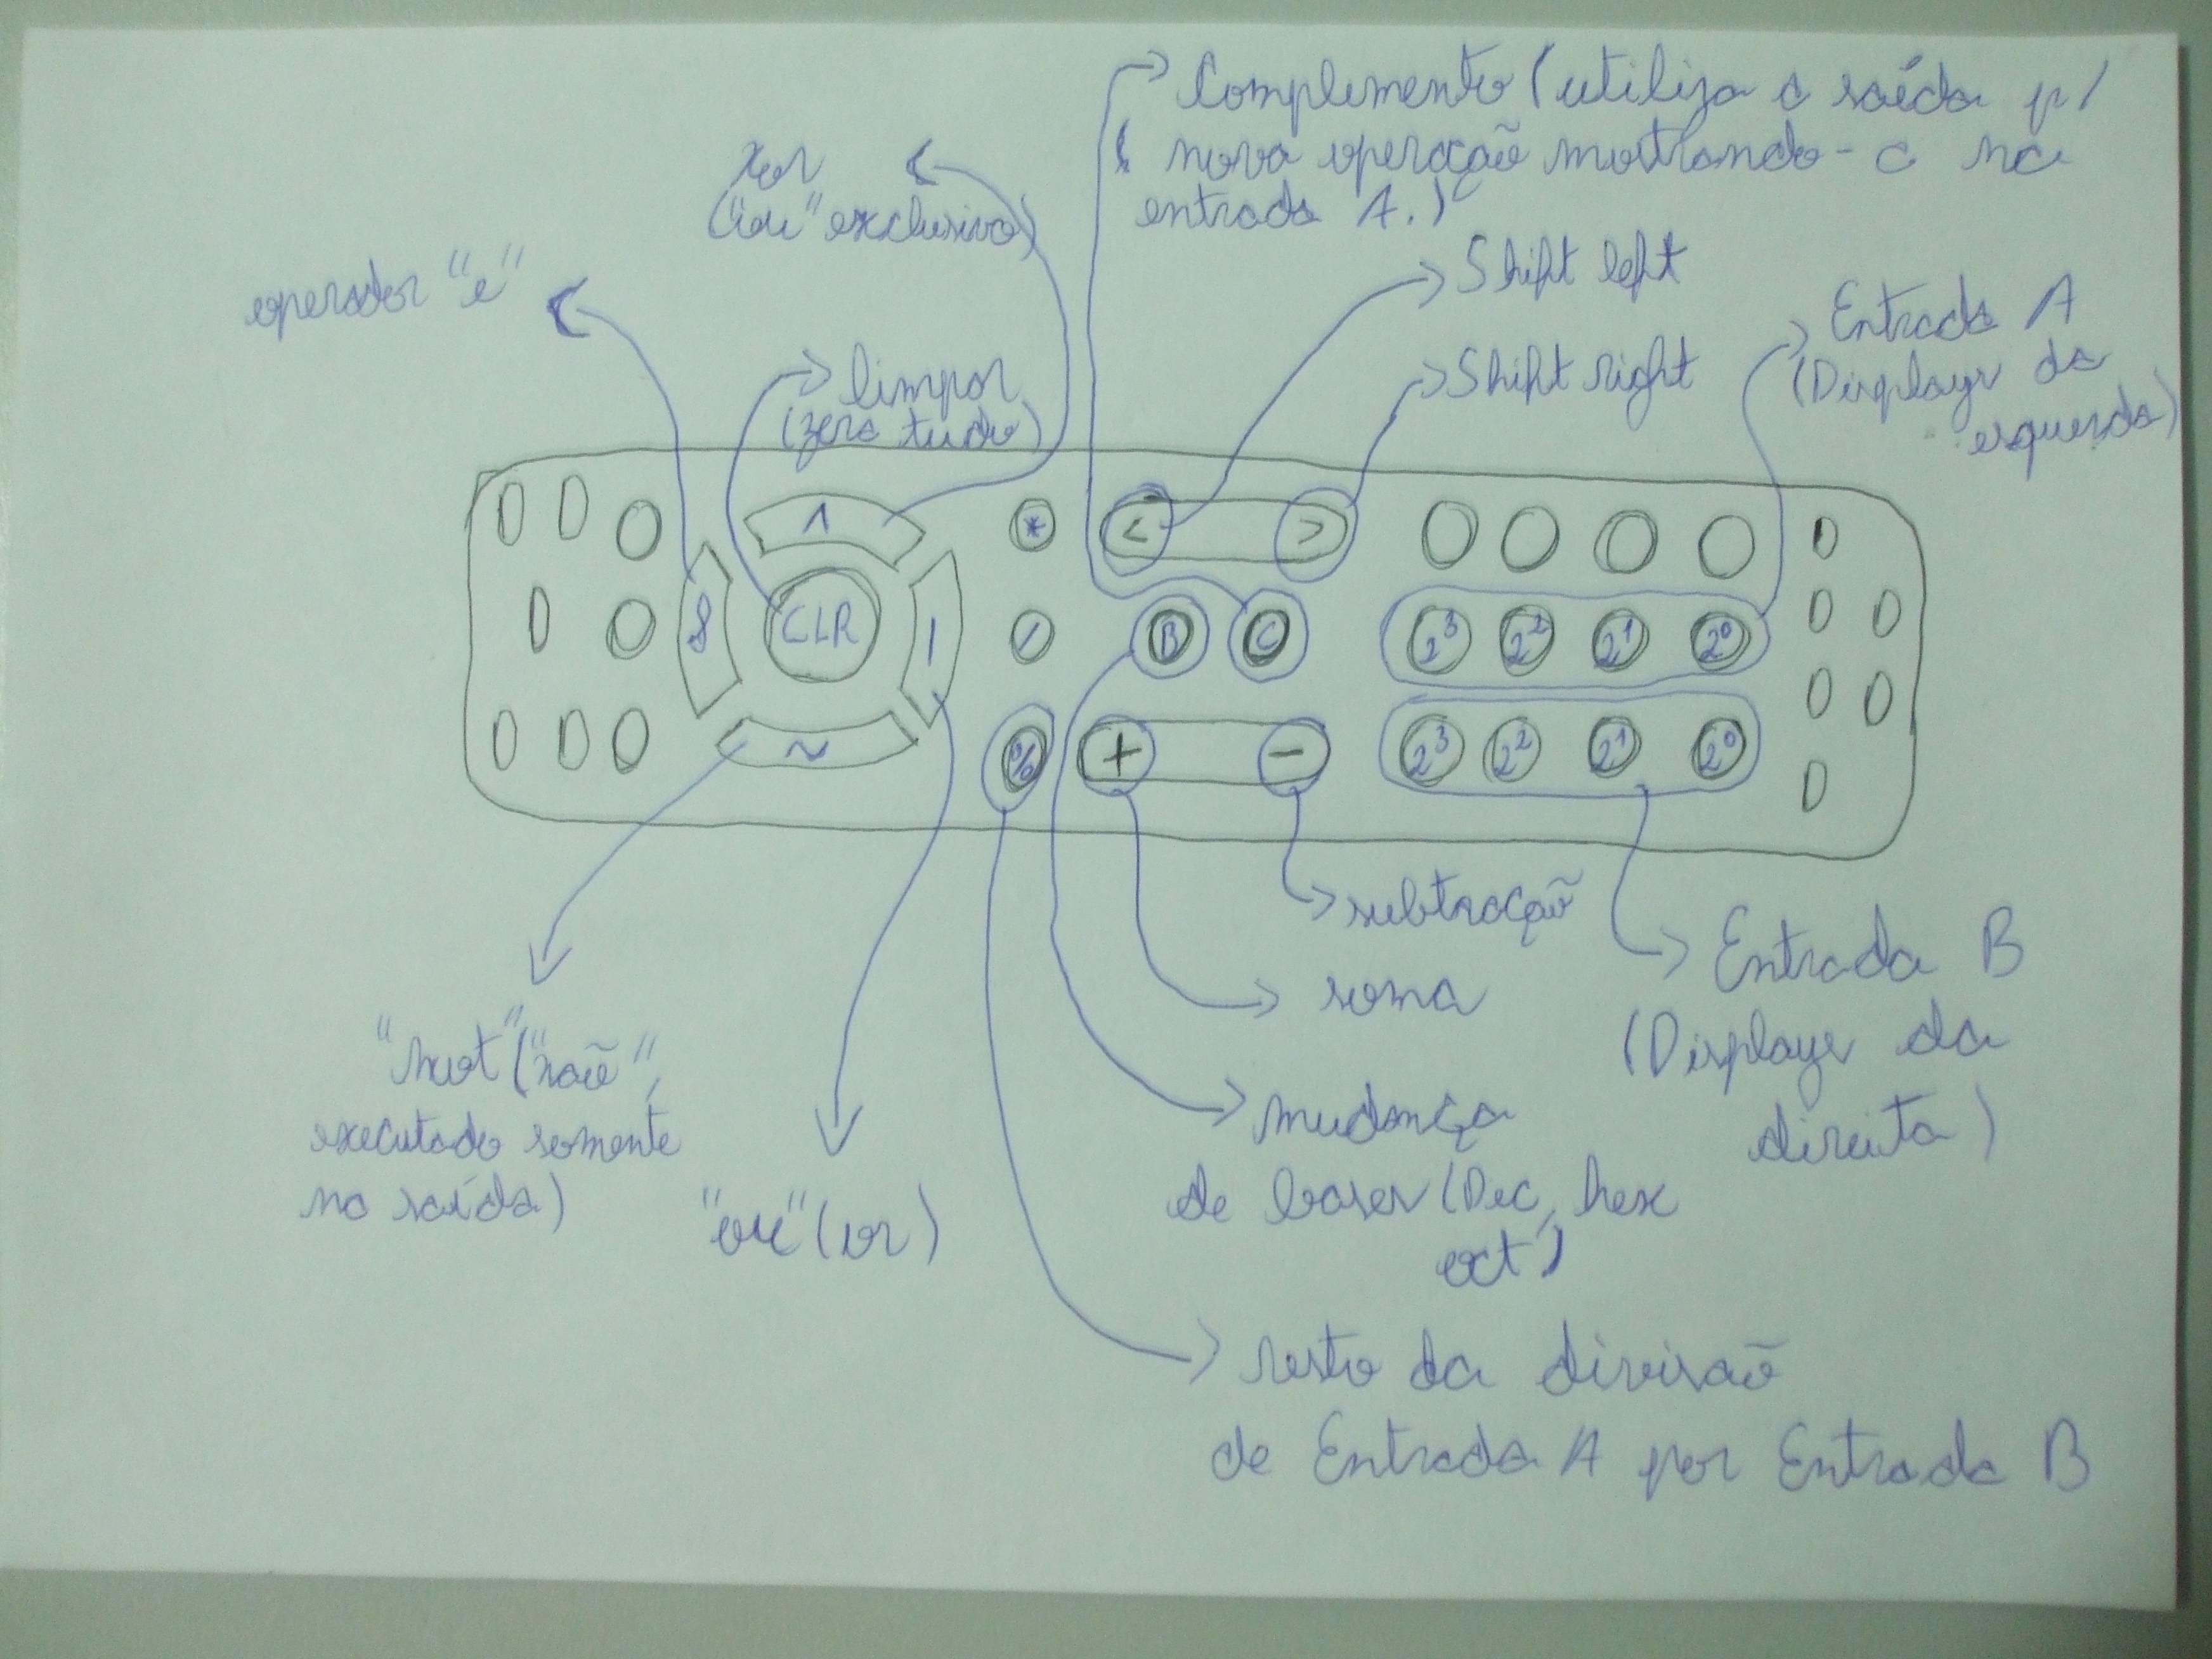 Complemento (utiliza a saída p/
nova operação mostrando-a na
entrada A.)
xor
("ou" exclusivo)
operador "e"
limpar
(zera tudo)
Shift left
Shift right
Entrada A
(Displays da
esquerda)
^
*
<
>
&
CLR
|
/
B
C
2³ 2² 2¹ 2⁰
~
%
+
-
2³ 2² 2¹ 2⁰
subtração
soma
Entrada B
(Displays da
direita)
"not" ("não",
executado somente
na saída)
"ou" (or)
mudança
de bases (Dec, hex
oct)
resto da divisão
de Entrada A por Entrada B